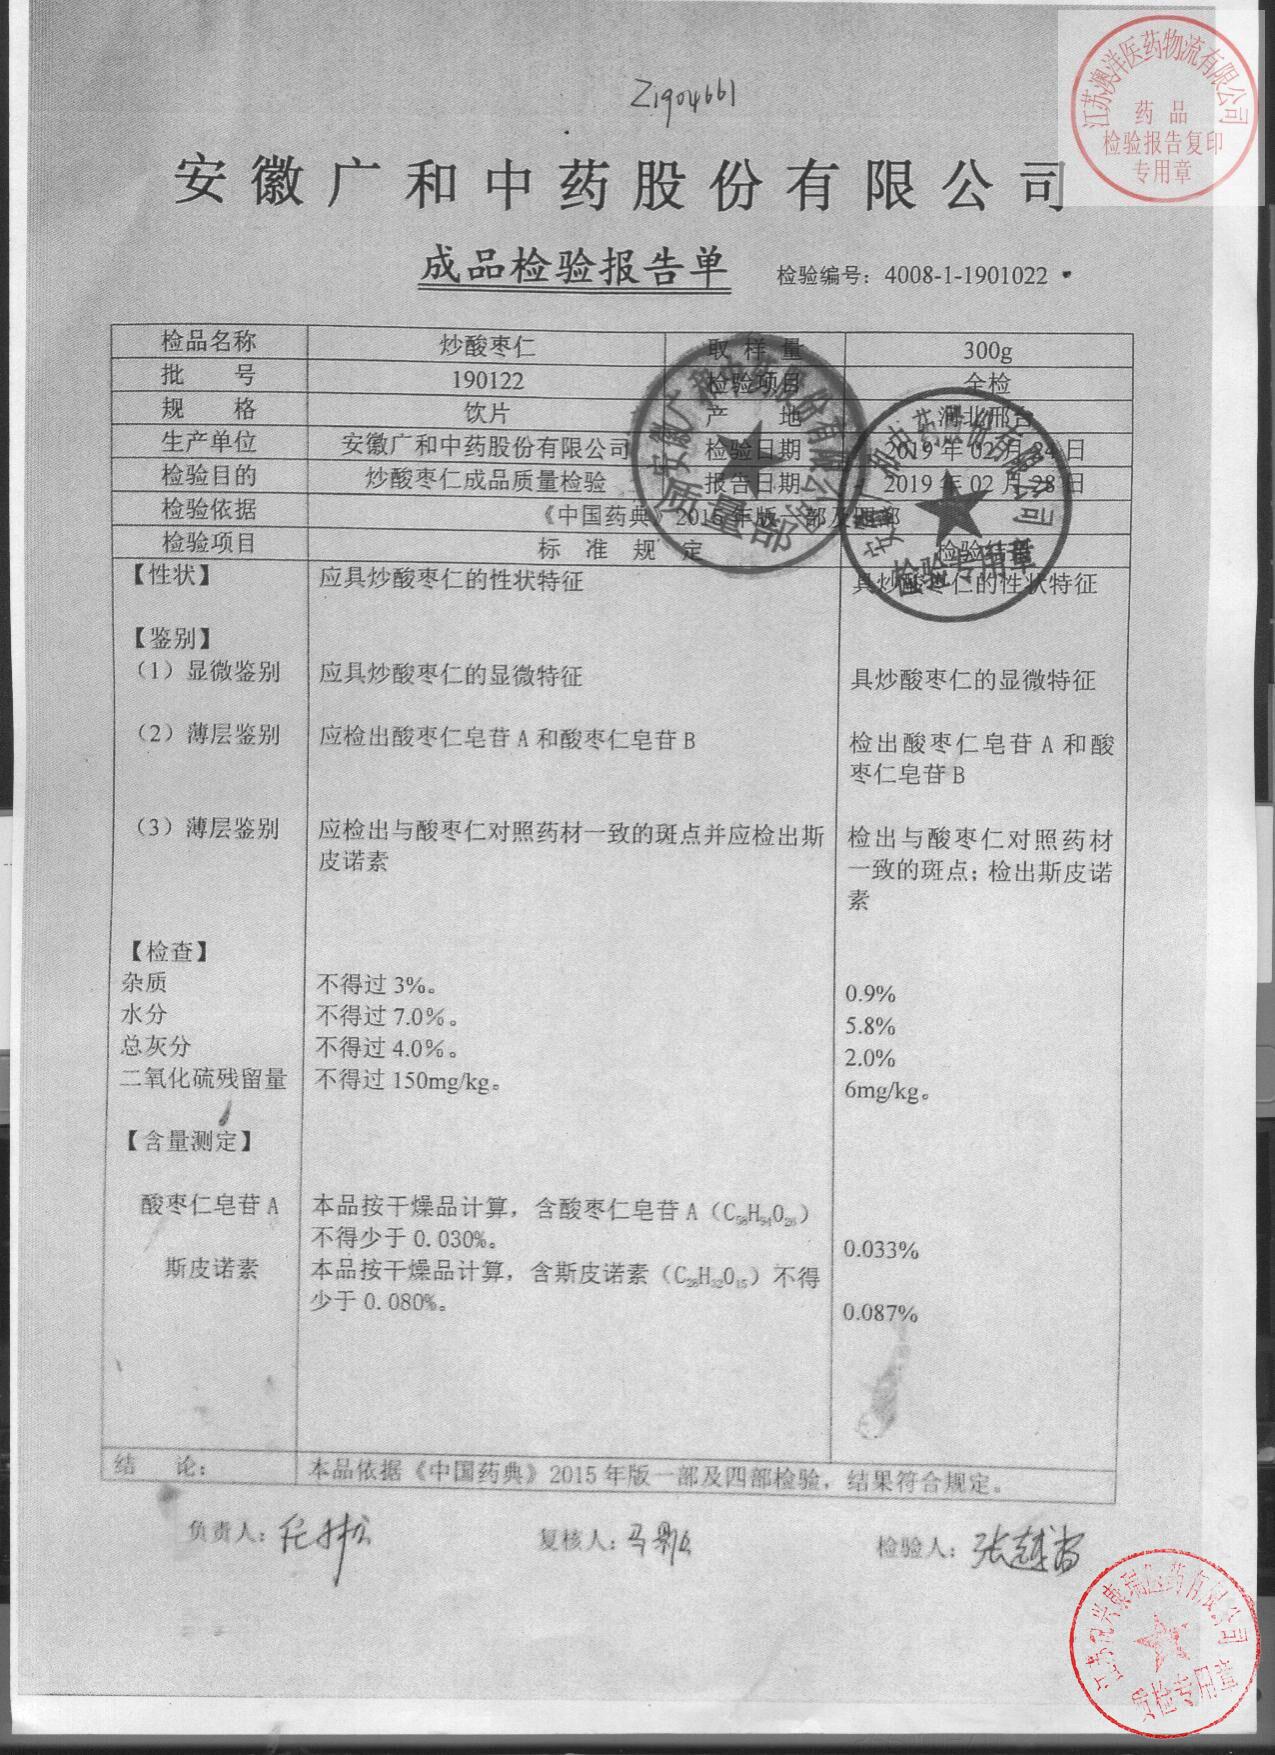 Z1904661
江苏澳洋医药物流有限公司
药品
检验报告复印
专用章
安徽广和中药股份有限公司
成品检验报告单 检验编号：4008-1-1901022
检品名称 炒酸枣仁 取样量 300g
批号 190122 检验项目 全检
规格 饮片 产地 河北邢台
生产单位 安徽广和中药股份有限公司 检验日期 2019年02月24日
检验目的 炒酸枣仁成品质量检验 报告日期 2019年02月28日
检验依据 《中国药典》2015年版一部及四部
检验项目 标准规定 检验结果
【性状】 应具炒酸枣仁的性状特征 具炒酸枣仁的性状特征
【鉴别】
（1）显微鉴别 应具炒酸枣仁的显微特征 具炒酸枣仁的显微特征
（2）薄层鉴别 应检出酸枣仁皂苷A和酸枣仁皂苷B 检出酸枣仁皂苷A和酸
枣仁皂苷B
（3）薄层鉴别 应检出与酸枣仁对照药材一致的斑点并应检出斯 检出与酸枣仁对照药材
皮诺素 一致的斑点；检出斯皮诺
素
【检查】
杂质 不得过3%。 0.9%
水分 不得过7.0%。 5.8%
总灰分 不得过4.0%。 2.0%
二氧化硫残留量 不得过150mg/kg。 6mg/kg。
【含量测定】
酸枣仁皂苷A 本品按干燥品计算，含酸枣仁皂苷A（C₅₈H₉₄O₂₆）
不得少于0.030%。 0.033%
斯皮诺素 本品按干燥品计算，含斯皮诺素（C₂₈H₃₂O₁₅）不得
少于0.080%。 0.087%
结论： 本品依据《中国药典》2015年版一部及四部检验，结果符合规定。
安徽广和中药股份有限公司
质量部
安徽广和中药股份有限公司
检验专用章
负责人： 复核人： 检验人：
医药有限公司
质检专用章